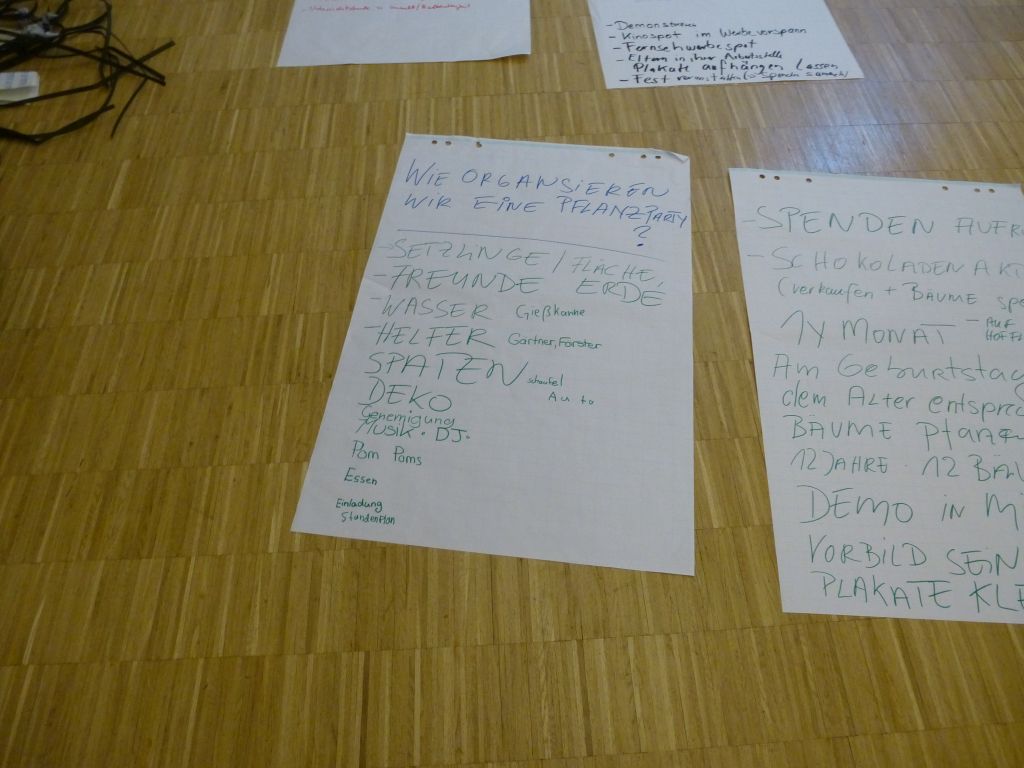 - Demonstrieren
- Kinospot im Werbevorspann
- Fernsehwerbespot
- Eltern in ihrer
Plakate aufhängen lassen
- Fest
WIE ORGANSIEREN
WIR EINE PFLANZPARTY
?
- SETZLINGE / FLÄCHE,
- FREUNDE ERDE
- WASSER Gießkanne
- HELFER Gärtner, Förster
SPATEN schaufel
Auto
DEKO
Genemigung
MUSIK · DJ ·
Pom Poms
Essen
Einladung
Stundenplan
- SPENDEN AUFR
- SCHOKOLADEN AKT
(verkaufen + BÄUME SPE
1x MONAT - AUF
HOFFL
Am Geburtstag
dem Alter entsprec
BÄUME pflan
12 JAHRE · 12 BÄU
DEMO IN M
VORBILD SEIN
PLAKATE KLE